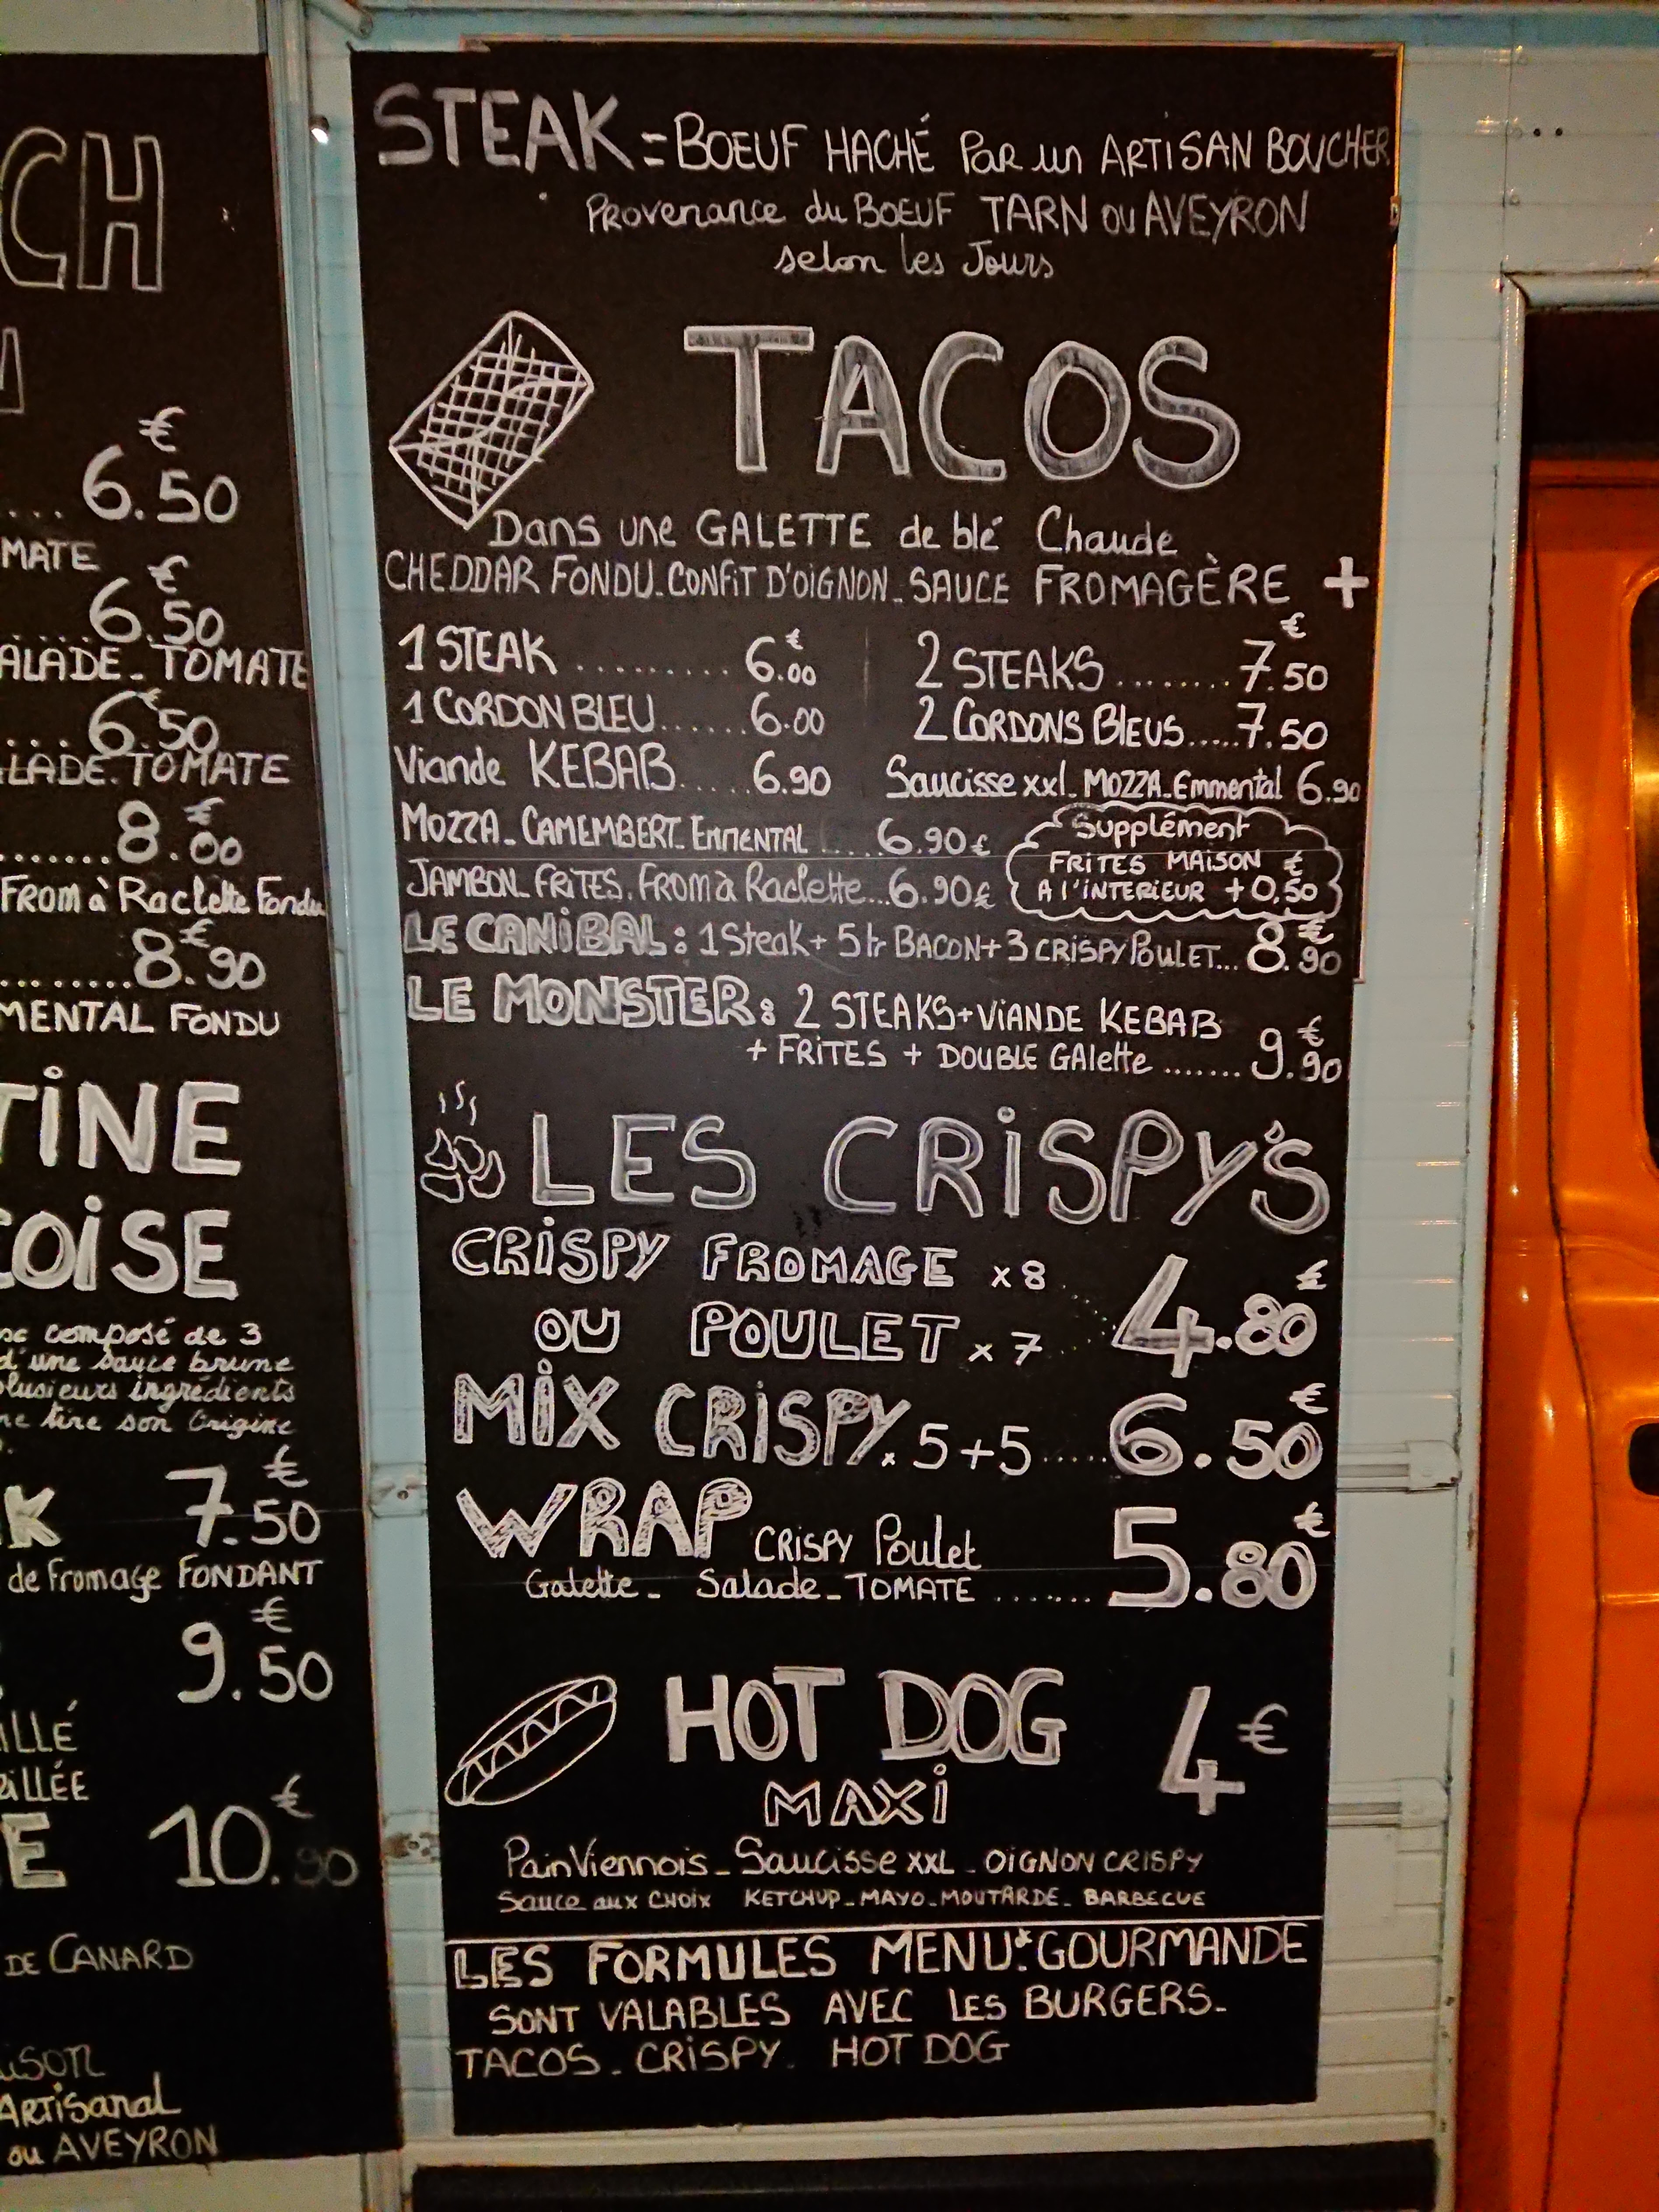 CH
€
6.50
MATE
€
6.50
ALADE_TOMATE
€
6.50
LADE.TOMATE
€
8.00
From à Raclette Fondu
€
8.90
MENTAL FONDU
TINE
COISE
composé de 3
d'une sauce brune
plusieurs ingrédients
tire son Origine
€
K 7.50
de Fromage FONDANT
€
9.50
ILLÉ
ILLÉE
€
E 10.90
DE CANARD
ARTISANAL
ou AVEYRON
STEAK = BOEUF HACHÉ PAR un ARTISAN BOUCHER
Provenance du BOEUF TARN OU AVEYRON
selon les Jours
TACOS
Dans une GALETTE de blé Chaude
CHEDDAR FONDU_CONFIT D'OIGNON_SAUCE FROMAGÈRE +
1 STEAK ......... 6.00€ 2 STEAKS ........ 7.50€
1 CORDON BLEU...... 6.00 2 CORDONS BLEUS.....7.50
Viande KEBAB..... 6.90 Saucisse xxl_MOZZA_Emmental 6.90
MOZZA_CAMEMBERT_EMMENTAL .... 6.90€
JAMBON_FRITES.FROM à Raclette...6.90€
Supplément
FRITES MAISON €
A l'INTERIEUR +0,50
LE CANIBAL : 1 Steak + 5 tr BACON + 3 CRISPY POULET... 8.90€
LE MONSTER : 2 STEAKS + VIANDE KEBAB
+ FRITES + DOUBLE GAlette ....... 9.90€
LES CRISPY'S
CRISPY FROMAGE x 8
OU POULET x 7 4.80€
MIX CRISPY x 5+5..... 6.50€
WRAP CRISPY Poulet
Galette_ Salade_TOMATE ....... 5.80€
HOT DOG 4€
MAXI
Pain Viennois_Saucisse XXL_OIGNON CRISPY
Sauce aux CHOIX KETCHUP_MAYO_MOUTARDE_BARBECUE
LES FORMULES MENU*.GOURMANDE
SONT VALABLES AVEC LES BURGERS_
TACOS_CRISPY_ HOT DOG